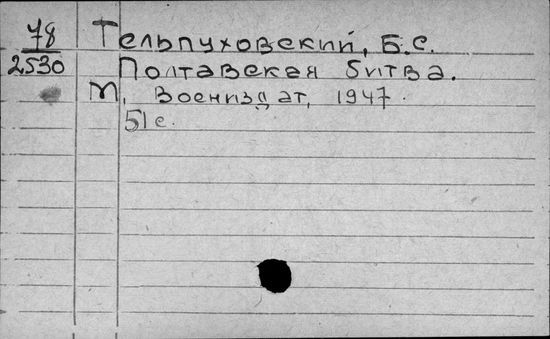 78 Тельпуховский, Б.С.
2530 Полтавская битва.
М, Воениздат, 1947.
51 с.